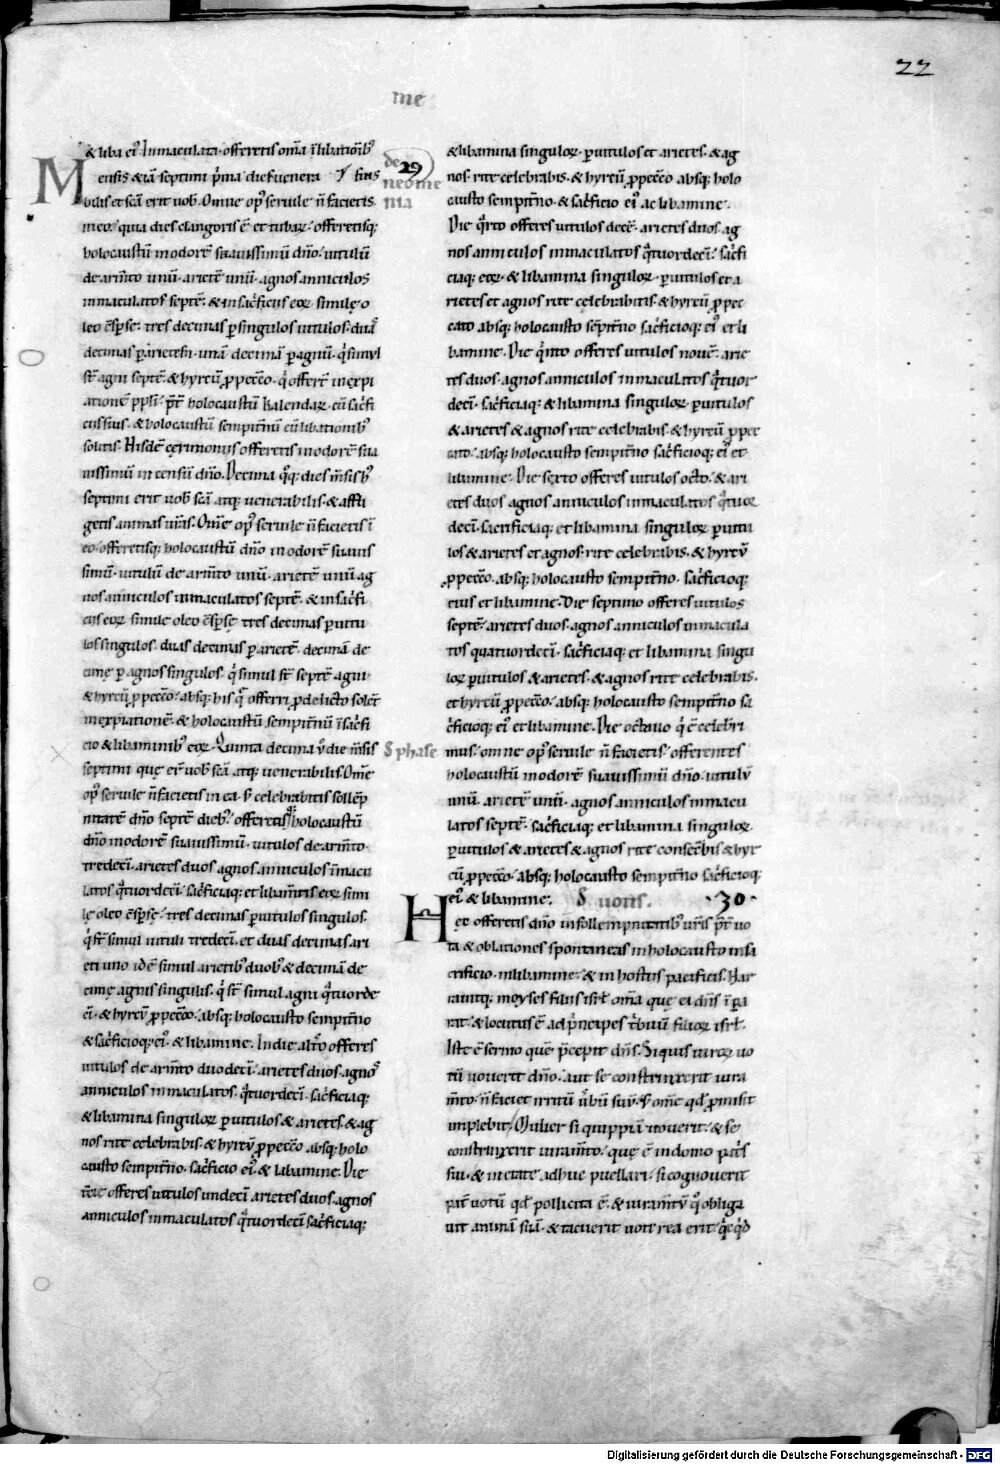 22
me
& liba ei᷒ Inmaculata offeretis om̅a c̅ libationib᷒
Mensis etiā septimi p̅ma dies uenera
bilis et sc̅a erit uob̅. Omne op᷒ seruile n̅ facietis
in eo. quia dies clangoris ē et tubaꝝ. offeretisq;
holocaustū in odorē suauissimū dn̅o. uitulū
de arm̅to unū. arietē unū. agnos anniculos
inmaculatos septē. & in sacrificiis eoꝝ similę o
leo c̅sp̅sę. tres decimas ꝑ singulos uitulos. duas
decimas ꝑ arietem. unā decimā ꝑ agnū. qͥ simul
st̅ agni septē. & hyrcū ꝓ peccͦo. qͥ offert᷒ in expi
ationē ppl̅i. p̅t̅ holocaustū kalendaꝝ cū sacͥfi
ciis suis. & holocaustū sempit̅nū cū libationib᷒
solitis. Hisdē cerimoniis offeretis in odorē sua
uissimū incensū dn̅o. Decima qͦq; dies m̅sis h᷒
septimi erit uob̅ sc̅a atq; uenerabilis. & affli
getis animas ur̅as. Om̅e op᷒ seruile n̅ facietis ī
eo. offeretisq; holocaustū dn̅o in odorē suauis
simū. uitulū de arm̅to unū. arietē unū. ag
nos anniculos inmaculatos septē. & in sacͥfi
ciis eoꝝ simile oleo c̅sp̅sę tres decimas ꝑ uitu
los singulos. duas decimas ꝑ arietē. decimā de
cimę ꝑ agnos singulos. qͥ simul st̅ septē agni
& hyrcū ꝓ peccͦo. absq; his qͣ offerri ꝓ delicto solent
in expiationē. & holocaustū sempit̅nū ī sacͥfi
cio & libaminib᷒ eoꝝ. Quinta decima u̅ die m̅sis
septimi quę erit uob̅ sc̅a atq; uenerabilis. Om̅e
op᷒ seruile n̅ facietis in ea. s̅ celebrabitis sollēp
nitatē dn̅o septē dieb᷒. offeretisq; holocaustū
dn̅o in odorē suauissimū. uitulos de arm̅to
tredecī. arietes duos agnos anniculos īmacu
latos qͣtuordecī. sacͥficiaq; et libam̅ta eoꝝ simi
lę oleo c̅sp̅sę. tres decimas ꝑ uitulos singulos.
qͥ st̅ simul uituli tredecī. et duas decimas ari
eti uno id ē simul arietib᷒ duob᷒ & decimā de
cimę agnis singulis. qͥ st̅ simul agni qͣtuorde
cī. & hyrcū ꝓ peccͦo. absq; holocausto sempit̅no
& sacͥficioq; ei᷒. & libamine. In die alt̅o offeres
uitulos de arm̅to duodecī. arietes duos. agnos
anniculos inmaculatos. qͣtuordecī. sacͥficiaq;
& libamina singuloꝝ ꝑ uitulos & arietes. & ag
nos rite celebrabis. & hyrcū ꝓ peccͦo absq; holo
causto sempit̅no. sacͥficio ei᷒. & libamine. Die
t̅cie offeres uitulos undecī arietes duos. agnos
anniculos inmaculatos qͣtuordecī sacͥficiaq;
fins
29
de
neome
nia
S phase
& libamina singuloꝝ. ꝑ uitulos et arietes. & ag
nos. rite celebrabis. & hyrcū ꝓ peccͦo absq; holo
causto sempit̅no. & sacͥficio ei᷒ ac libamine.
Die qͣrto offeres uitulos decē. arietes duos ag
nos anniculos inmaculatos qͣtuordecī. sacͥfi
ciaq; eoꝝ. & libamina singuloꝝ. ꝑ uitulos et a
rietes et agnos rite celebrabitis. & hyrcū ꝓ pec
cato absq; holocausto sēpit̅no sacͥficioq; ei᷒ et li
bamine. Die qͥnto offeres uitulos nouē. arie
tes duos. agnos anniculos inmaculatos qͣtuor
decī. sacͥficiaq; & libamina singuloꝝ. ꝑ uitulos
& arietes & agnos rite celebrabis. & hyrcū ꝓ pec
cato. absq; holocausto sempit̅no sacͥficioq; ei᷒ et
libamine. Die sexto offeres uitulos octo. & ari
etes duos agnos anniculos inmaculatos qͣtuor
decī. sacrificiaq; et libamina singuloꝝ ꝑ uitu
los & arietes et agnos. rite celebrabis. & hyrcū
ꝓ peccͦo. absq; holocausto sempit̅no. sacͥficioq;
eius et libamine. Die septimo offeres uitulos
septē. arietes duos. agnos anniculos inmacula
tos quatuordecī. sacͥficiaq; et libamina singu
loꝝ ꝑ uitulos & arietes. & agnos rite celebrabis.
et hyrcū ꝓ peccͦo. absq; holocausto sempit̅no sa
cͥficioq; ei᷒ et libamine. Die octauo qͥ ē celebri
mus. omne op᷒ seruile n̅ facietis. offerentes
holocaustū in odorē suauissimū dn̅o. uitulū
unū. arietē unū. agnos anniculos inmacu
latos septē. sacͥficiaq; et libamina singuloꝝ.
ꝑ uitulos & arietes & agnos rite celebrabis & hyr
cū ꝓ peccͦo. absq; holocausto sempit̅no sacͥficioq;
ei᷒ & libamine. S. uotis. ·30·
Hęc offeretis dn̅o in sollempnitatib᷒ ur̅is p̅t̅ uo
ta & oblationes spontaneas in holocausto in sa
crificio. in libamine. & in hostiis pacificis. Nar
rauitq; moyses filiis isrl̅ om̅a quę ei dn̅s īpa
rat. & locutus ē ad pͥncipes tͥbuū filioꝝ isrl̅.
Iste ē sermo quē p̅cepit dn̅s. Siquis uiroꝝ uo
tū uouerit dn̅o. aut se constrinxerit iura
m̅to. n̅ faciet irritū u̅bū suū. s̅ om̅e qd̅ ꝓmisit
implebit. Mulier si quippiā uouerit. & se
constrinxerit iuram̅to. quę ē in domo patͥs
sui. & in etate adhuc puellari. si cognouerit
pat̅ uotū qd̅ pollicita ē. & iuram̅tū qͦ obliga
uit animā suā. & tacuerit uoti rea erit. qͥcqͥd
Digitalisierung gefördert durch die Deutsche Forschungsgemeinschaft - DFG